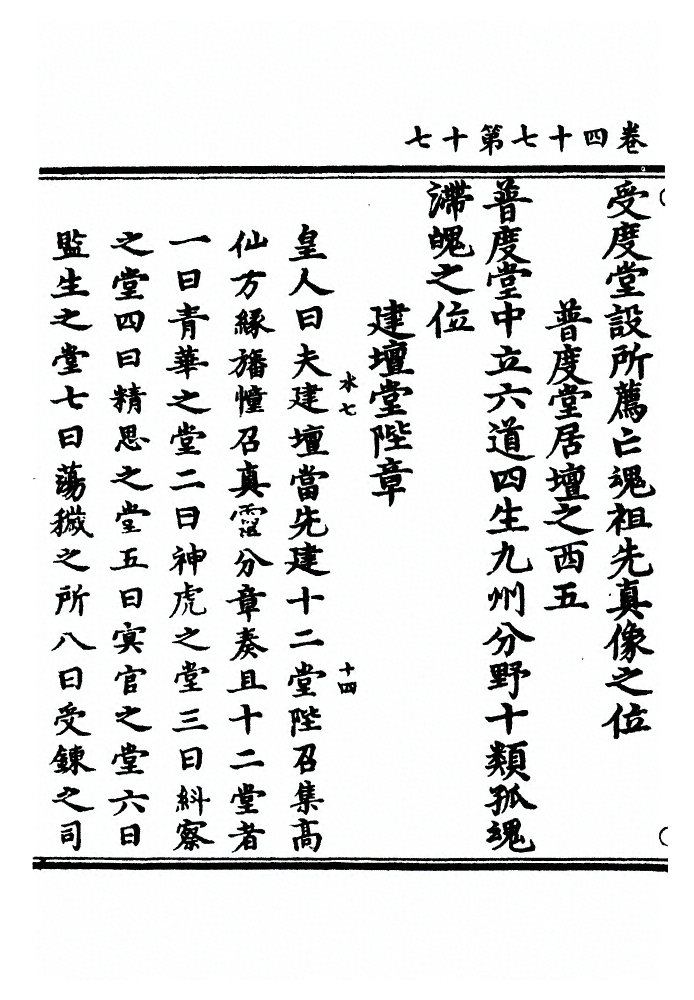 卷四十七第十七
受度堂設所薦亡魂祖先真像之位
普度堂居壇之西五
普度堂中立六道四生九州分野十類孤魂
滯魄之位
建壇堂陛章
水七
十四
皇人曰夫建壇當先建十二堂陛召集高
仙方緣旛幢召真靈分章奏且十二堂者
一曰青華之堂二曰神虎之堂三曰糾察
之堂四曰精思之堂五曰㝠官之堂六曰
監生之堂七曰蕩穢之所八曰受鍊之司